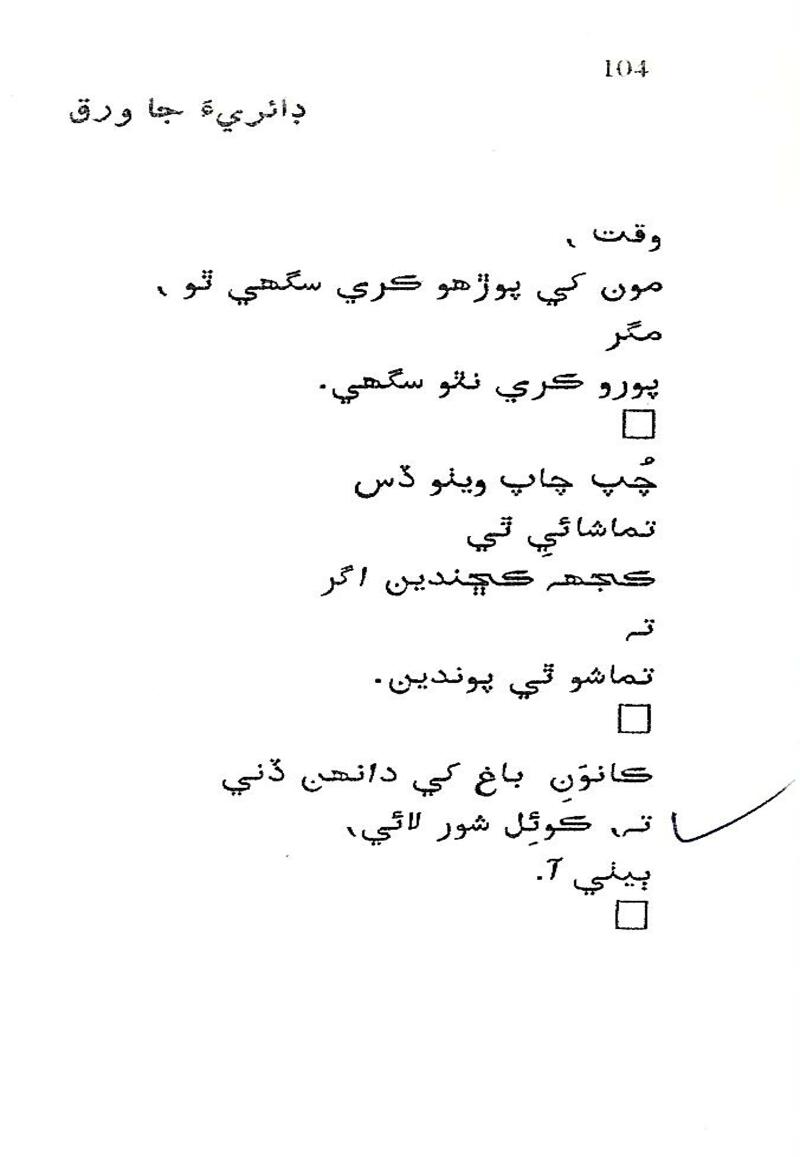 104
ڊائريءَ جا ورق
وقت ،
مون کي پوڙهو ڪري سگهي ٿو ،
مگر
پورو ڪري نٿو سگهي.
چُپ چاپ ويٺو ڏس
تماشائيِ ٿي
ڪجهہ ڪڇندين اگر
تہ
تماشو ٿي پوندين.
ڪانوَنِ باغ کي دانهن ڏني
تہ، ڪوئِل شور لائي،
ٻيٺي آ.